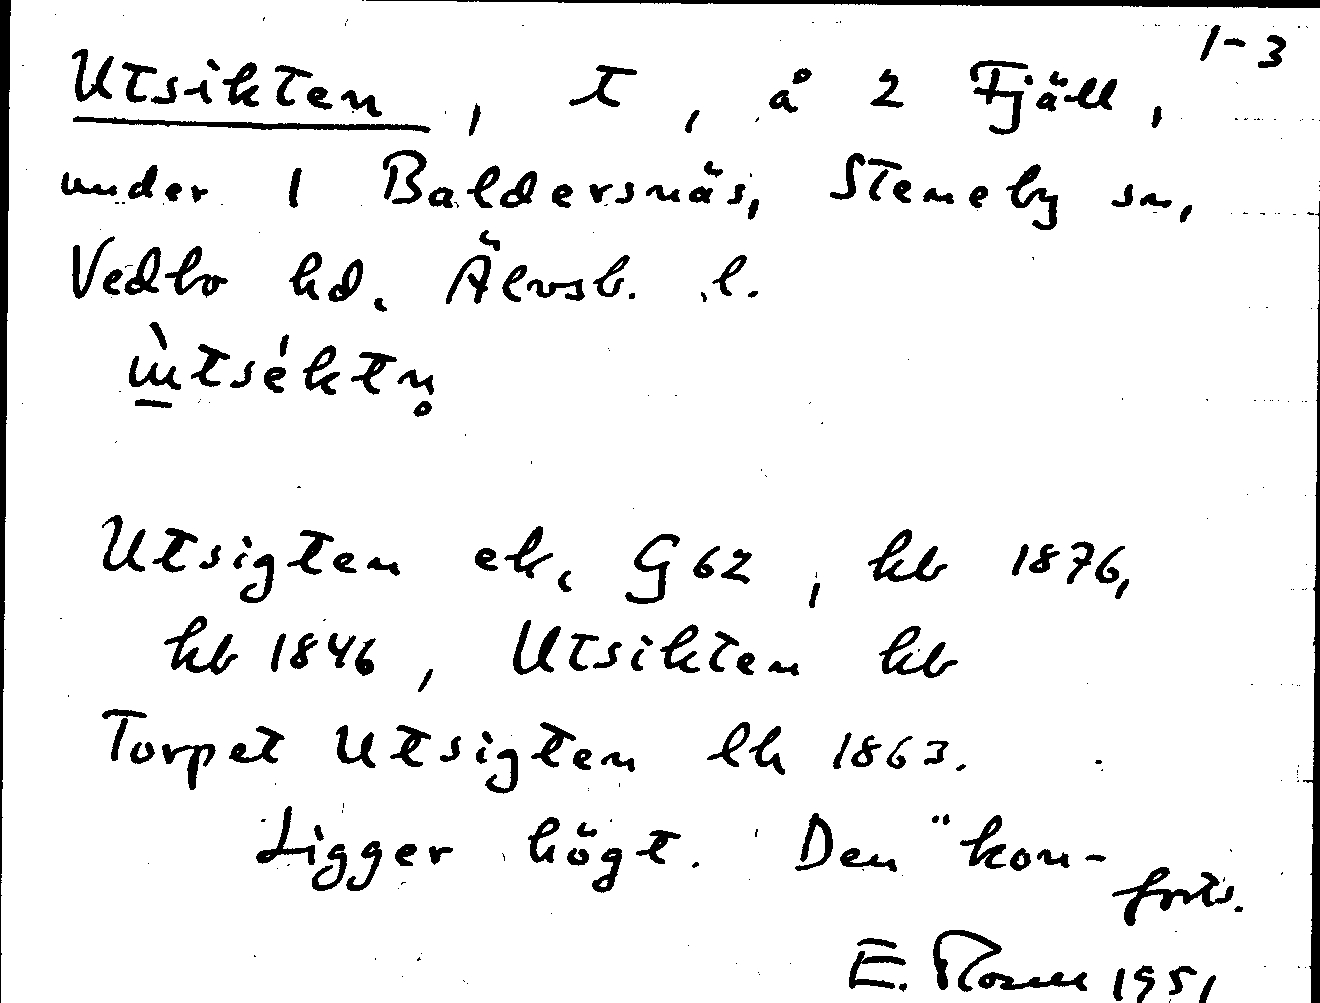 1-3
Utsikten, t, å 2 Fjäll,
under 1 Baldersnäs, Steneby sn,
Vedbo hd. Älvsb. l.
ù̲tséktn̥
Utsigten ek. G62, kb 1876,
hb 1846, Utsikten kb
Torpet Utsigten lh 1863.
Ligger högt. Den "kon-
forts.
E. 1951